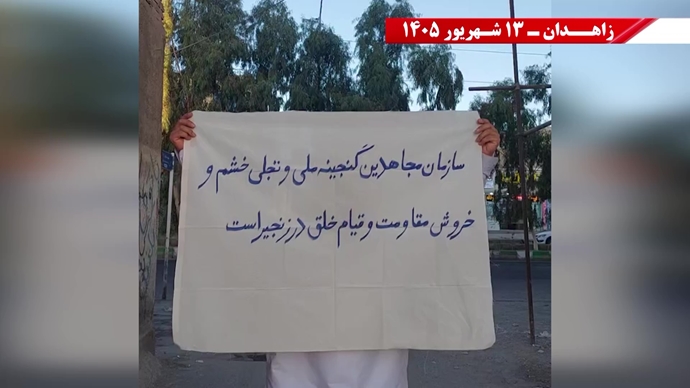 زاهـدان ـ ۱۳ شهریور ۱۴۰۵
سازمان مجاهدین گنجینه ملی و تجلی خشم و
خروش مقاومت و قیام خلق در زنجیر است